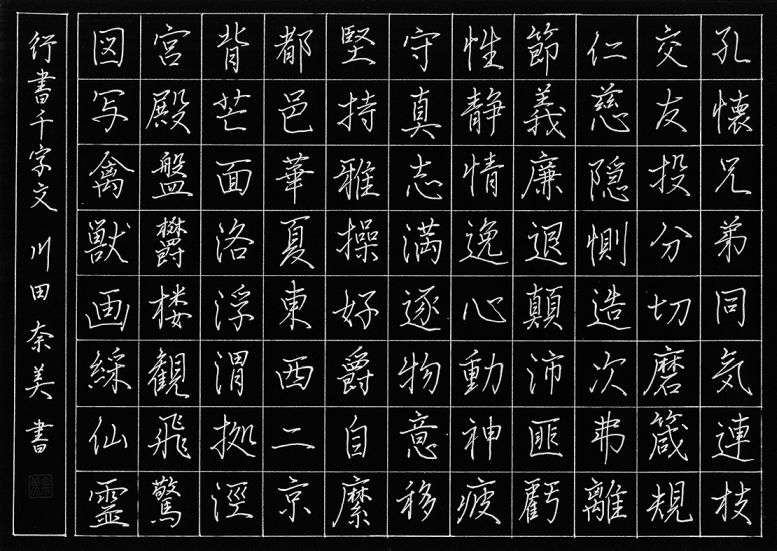 孔懐兄弟同気連枝
交友投分切磨箴規
仁慈隠惻造次弗離
節義廉退顛沛匪虧
性静情逸心動神疲
守真志満逐物意移
堅持雅操好爵自縻
都邑華夏東西二京
背芒面洛浮渭拠涇
宮殿盤欝楼観飛驚
図写禽獣画綵仙霊
行書千字文 川田奈美書